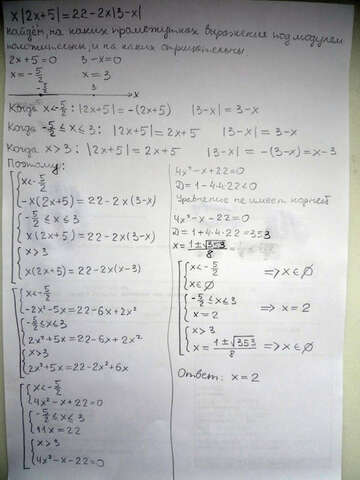 x|2x+5|=22-2x|3-x|
найдём, на каких промежутках выражение под модулем
положительны, и на каких отрицательны
2x+5=0 3-x=0
x=-5/2 x=3
-5/2 3 x
Когда x<-5/2: |2x+5|=-(2x+5) |3-x|=3-x
Когда -5/2≤x≤3: |2x+5|=2x+5 |3-x|=3-x
Когда x>3: |2x+5|=2x+5 |3-x|=-(3-x)=x-3
Поэтому:
x<-5/2
-x(2x+5)=22-2x(3-x)
-5/2≤x≤3
x(2x+5)=22-2x(3-x)
x>3
x(2x+5)=22-2x(x-3)
x<-5/2
-2x²-5x=22-6x+2x²
-5/2≤x≤3
2x²+5x=22-6x+2x²
x>3
2x²+5x=22-2x²+6x
x<-5/2
4x²-x+22=0
-5/2≤x≤3
11x=22
x>3
4x²-x-22=0
4x²-x+22=0
D=1-4·4·22<0
Уравнение не имеет корней
4x²-x-22=0
D=1+4·4·22=353
x=(1±√353)/8
x<-5/2
x∈∅ =>x∈∅
-5/2≤x≤3
x=2 =>x=2
x>3
x=(1±√353)/8 =>x∈∅
Ответ: x=2